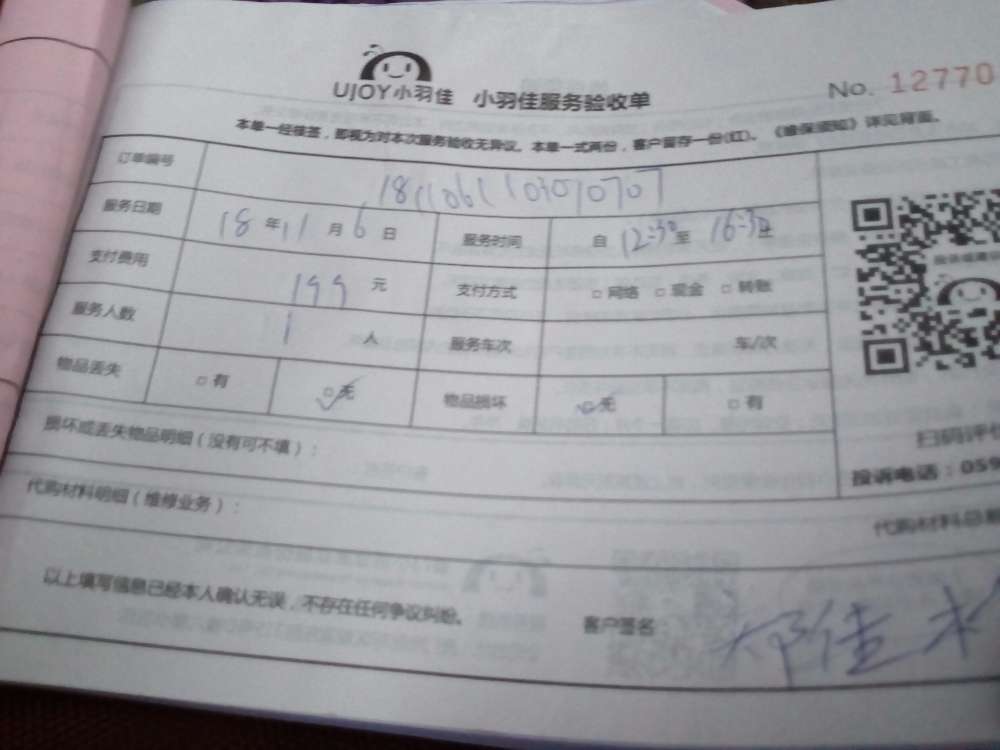 UJOY小羽佳 小羽佳服务验收单 No. 12770
本单一经接签，即视为对本次服务验收无异议。本单一式两份，客户留存一份(红)。《维保须知》详见背面。
订单编号
服务日期 18 年 11 月 6 日 服务时间 自 12:30 至 16:30
支付费用 199 元 支付方式 □ 网络 □ 现金 □ 转账
服务人数 1 人 服务车次 车/次
物品丢失 □ 有 ☑ 无 物品损坏 ☑ 无 □ 有
损坏或丢失物品明细（没有可不填）：
扫码评价
投诉电话：059
代购材料明细（维修业务）：
代购材料总
以上填写信息已经本人确认无误，不存在任何争议纠纷。
客户签名